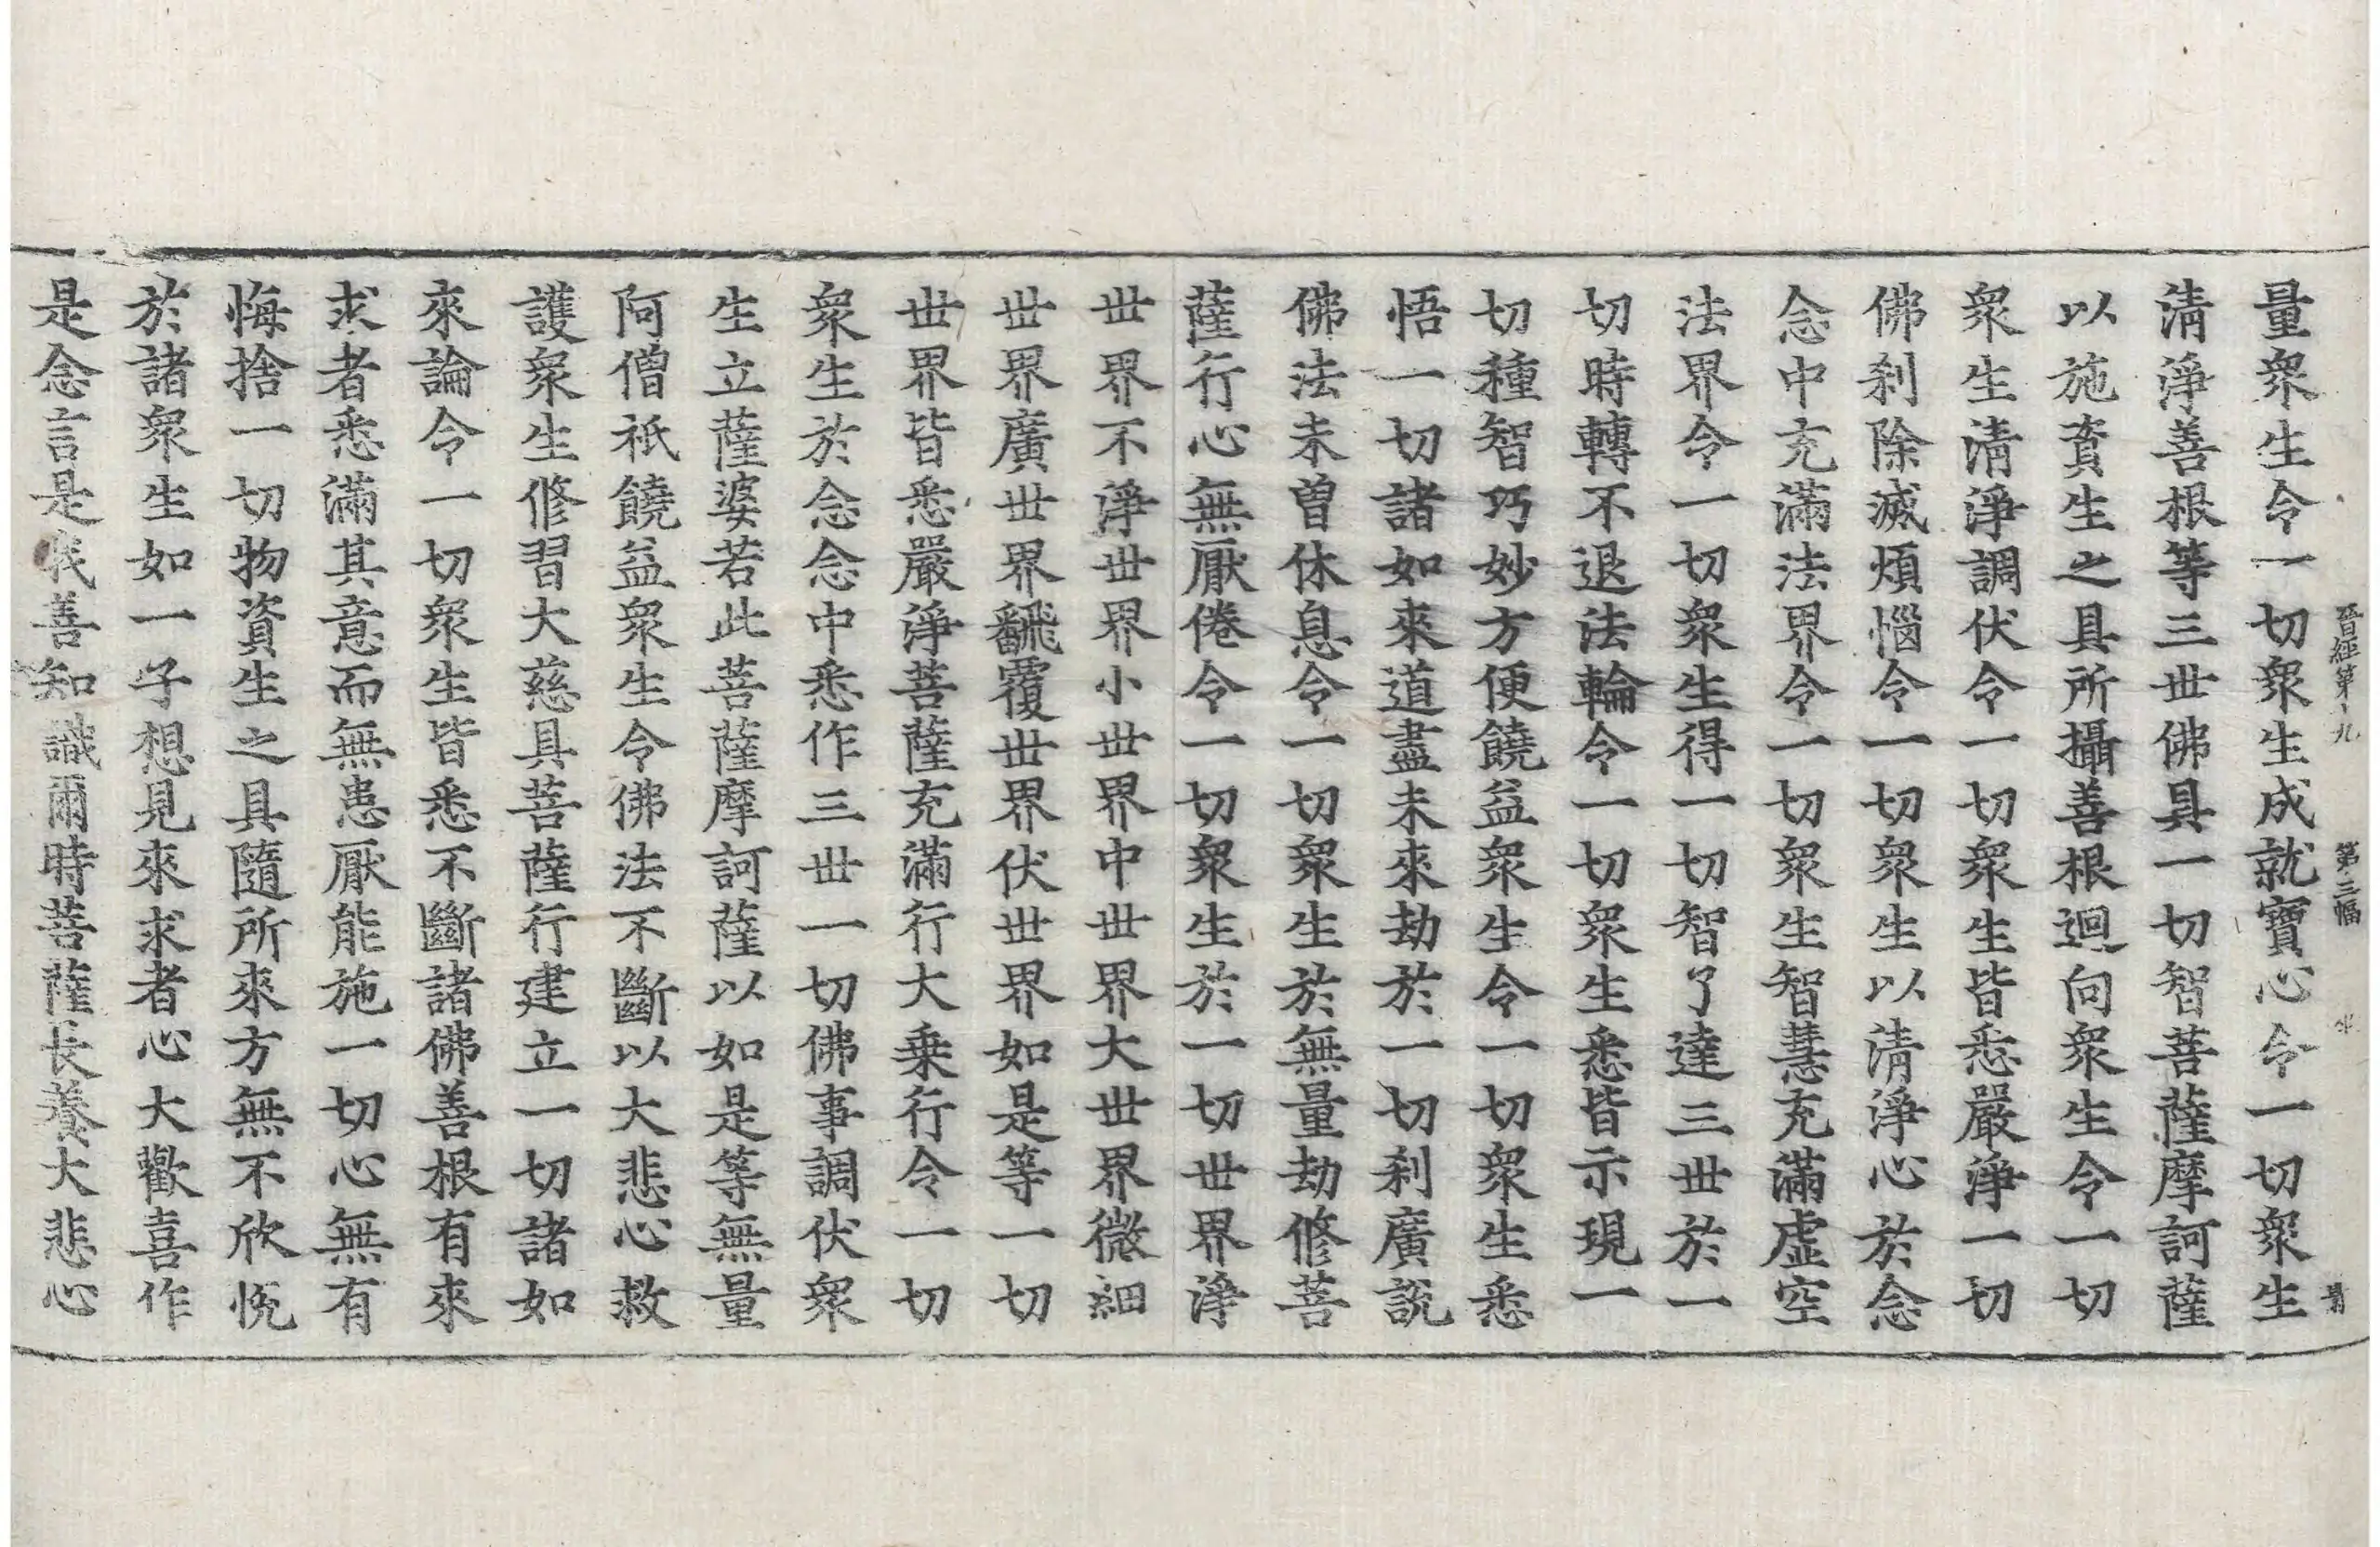 晉經第十九 第三幅
量衆生令一切衆生成就寶心令一切衆生
淸淨善根等三世佛具一切智菩薩摩訶薩
以施資生之具所攝善根迴向衆生令一切
衆生清淨調伏令一切衆生皆悉嚴淨一切
佛刹除滅煩惱令一切衆生以清淨心於念
念中充滿法界令一切衆生智慧充滿虛空
法界令一切衆生得一切智了達三世於一
切時轉不退法輪令一切衆生悉皆示現一
切種智巧妙方便饒益衆生令一切衆生悉
悟一切諸如來道盡未來劫於一切刹廣說
佛法未曾休息令一切衆生於無量劫修菩
薩行心無厭倦令一切衆生於一切世界淨
世界不淨世界小世界中世界大世界微細
世界廣世界飜覆世界伏世界如是等一切
世界皆悉嚴淨菩薩充滿行大乗行令一切
衆生於念念中悉作三世一切佛事調伏衆
生立薩婆若此菩薩摩訶薩以如是等無量
阿僧祇饒益衆生令佛法不斷以大悲心救
護衆生修習大慈具菩薩行建立一切諸如
來論令一切衆生皆悉不斷諸佛善根有來
求者悉滿其意而無患厭能施一切心無有
悔捨一切物資生之具隨所來方無不欣悅
於諸衆生如一子想見來求者心大歡喜作
是念言是我善知識爾時菩薩長養大悲心